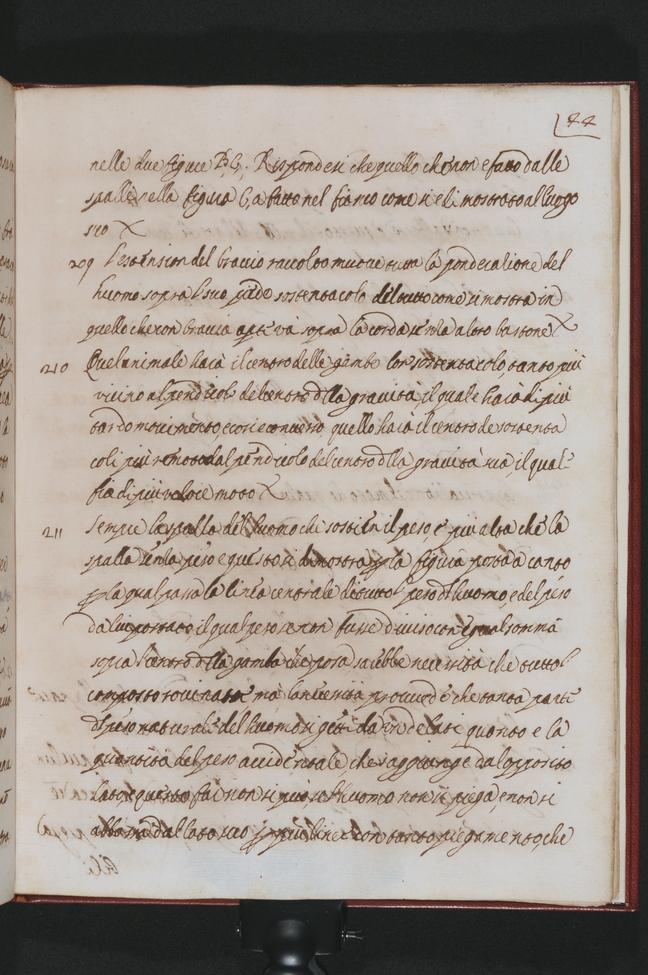 44
nelle due figure B, C, Rispondesi che quello che non e fatto dalle
spalle nella figura C, a fatto nel fianco come si e li mostrato al luogo
suo X
209 l'estension del braccio raccolto muove tutta la ponderatione del
huomo sopra l suo piede sostentacolo del tutto come si mostra in
quello che con braccia apte va sopra la corda senza altro bastone X
210 Quel animale hara il centro delle gambe lor sostentacolo tanto piu
vicino al pendicolo del centro della gravita, il quale hara di piu
tardo movimento, e cosi e converso quello hara il centro de sostenta
coli piu remoto dal pendicolo del centro della gravita sua, il qual
fia di piu veloce moto X
211 Sempre la spalla del huomo che sostien il peso, e piu alta che la
spalla senza peso e questo si dimostra p la figura posta da canto
p la qual passa la linea centrale di tutto l peso del huomo, e del peso
da lui portato il qual peso se non fusse diviso con equal somma
sopra l centro della gamba che posa, sarebbe necessita che tutto l
composto rovinasse ma la necessita provvede che tanta parte
del peso naturale del huomo si getti da un de lati quanto e la
quantita del peso accidentale che s'aggiunge dal opposito
lato, e questo far non si puo se l'huomo non si piega, e non si
abbassa dal lato suo piu lieve con tanto piegamento, che